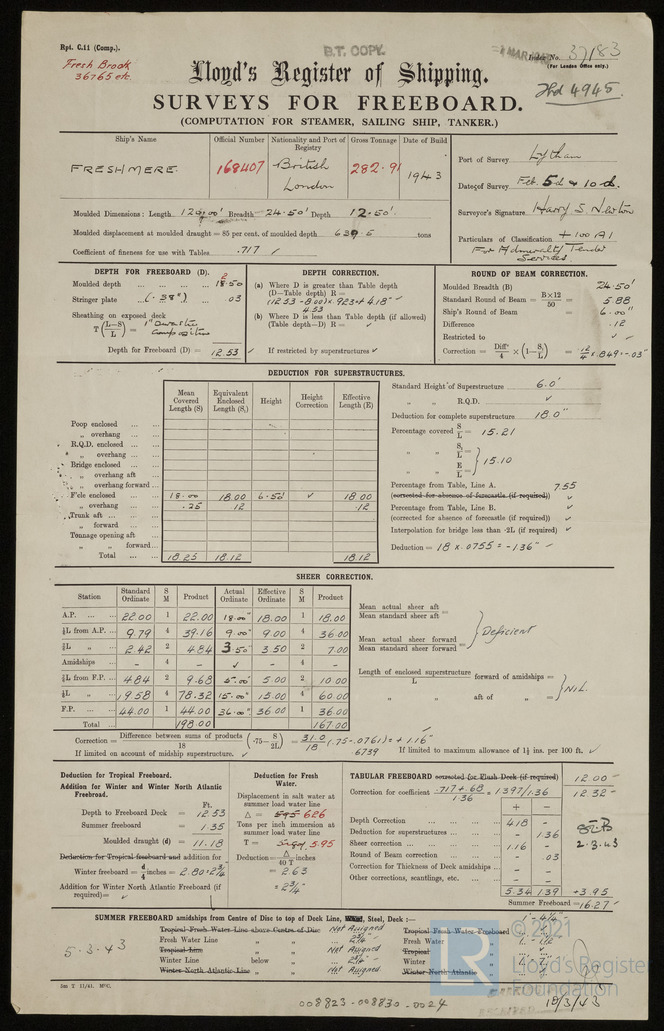 Rpt. C.11 (Comp.).
B.T. COPY.
Index No. 37183
(For London Office only.)
Fresh Brook
36765 etc.
Lloyd's Register of Shipping.
4945
SURVEYS FOR FREEBOARD.
(COMPUTATION FOR STEAMER, SAILING SHIP, TANKER.)
Ship's Name Official Number Nationality and Port of Registry Gross Tonnage Date of Build
FRESHMERE 168407 British London 282.91 1943
Port of Survey Lytham
Date of Survey Feb. 5th & 10th.
Surveyor's Signature Harry S. Newton
Particulars of Classification + 100 A1
For Admiralty Tender Services
Moulded Dimensions: Length 120.00' Breadth 24.50' Depth 12.50'
Moulded displacement at moulded draught = 85 per cent. of moulded depth 639.5 tons
Coefficient of fineness for use with Tables .717
DEPTH FOR FREEBOARD (D).
Moulded depth 12.50
Stringer plate (.38") .03
Sheathing on exposed deck
T (L-S/L) =
Depth for Freeboard (D) = 12.53
DEPTH CORRECTION.
(a) Where D is greater than Table depth
(D—Table depth) R =
(12.53 - 8.00) x .923 = + 4.18"
4.53
(b) Where D is less than Table depth (if allowed)
(Table depth—D) R = ✓
If restricted by superstructures ✓
ROUND OF BEAM CORRECTION.
Moulded Breadth (B) 24.50'
Standard Round of Beam = B×12/50 = 5.88
Ship's Round of Beam = 6.00"
Difference .12
Restricted to ✓
Correction = Diffce/4 × (1—S₁/L) = .12/4 x .849 = -.03"
DEDUCTION FOR SUPERSTRUCTURES.
Mean Covered Length (S) Equivalent Enclosed Length (S₁) Height Height Correction Effective Length (E)
Poop enclosed
„ overhang
R.Q.D. enclosed
„ overhang
Bridge enclosed
„ overhang aft
„ overhang forward
F'cle enclosed 18.00 18.00 6.50' ✓ 18.00
„ overhang .25 .12 .12
Trunk aft
„ forward
Tonnage opening aft
„ „ forward
Total 18.25 18.12 18.12
Standard Height of Superstructure 6.0'
„ „ R.Q.D. ✓
Deduction for complete superstructure 18.0"
Percentage covered S/L = 15.21
„ „ S₁/L =
„ „ E/L = } 15.10
Percentage from Table, Line A. 7.55
(corrected for absence of forecastle (if required)) ✓
Percentage from Table, Line B. ✓
(corrected for absence of forecastle (if required)) ✓
Interpolation for bridge less than ·2L (if required) ✓
Deduction = 18 x .0755 = -1.36"
SHEER CORRECTION.
Station Standard Ordinate S M Product Actual Ordinate Effective Ordinate S M Product
A.P. 22.00 1 22.00 18.00" 18.00 1 18.00
⅙L from A.P. 9.79 4 39.16 9.00" 9.00 4 36.00
⅓L „ 2.42 2 4.84 3.50" 3.50 2 7.00
Amidships - 4 - ✓ - 4 -
⅓L from F.P. 4.84 2 9.68 5.00" 5.00 2 10.00
⅙L „ 19.58 4 78.32 15.00" 15.00 4 60.00
F.P. 44.00 1 44.00 36.00" 36.00 1 36.00
Total 198.00 167.00
Mean actual sheer aft
Mean standard sheer aft =
Mean actual sheer forward
Mean standard sheer forward =
} Deficient
Length of enclosed superstructure/L forward of amidships =
„ „ aft of „ =
} NIL.
Correction = Difference between sums of products/18 (·75—S/2L) = 31.0/18 (.75-.0761) = + 1.16"
.6739
If limited on account of midship superstructure. ✓
If limited to maximum allowance of 1½ ins. per 100 ft. ✓
Deduction for Tropical Freeboard.
Addition for Winter and Winter North Atlantic Freeboard.
Ft.
Depth to Freeboard Deck = 12.53
Summer freeboard = 1.35
Moulded draught (d) = 11.18
Deduction for Tropical freeboard and addition for
Winter freeboard = d/4 inches = 2.80 = 2¾"
Addition for Winter North Atlantic Freeboard (if required) = ✓
Deduction for Fresh Water.
Displacement in salt water at summer load water line
Δ = 595 626
Tons per inch immersion at summer load water line
T = 5.95
Deduction = Δ/40 T inches
= 2.63
= 2¾"
TABULAR FREEBOARD corrected for Flush Deck (if required) 12.00
Correction for coefficient .717+.68/1.36 = 1.397/1.36 12.32
+ -
Depth Correction 4.18 -
Deduction for superstructures - 1.36
Sheer correction 1.16 -
Round of Beam correction - .03
Correction for Thickness of Deck amidships - -
Other corrections, scantlings, etc. - -
5.34 1.39 +3.95
Summer Freeboard = 16.27
2.3.43
SUMMER FREEBOARD amidships from Centre of Disc to top of Deck Line, Wood, Steel, Deck:—
Tropical Fresh Water Line above Centre of Disc Not Assigned
Fresh Water Line „ „ 2¾"
Tropical Line „ „ Not Assigned
Winter Line below „ 2¾"
Winter North Atlantic Line „ „ Not Assigned
Tropical Fresh Water Freeboard
Fresh Water „
Tropical „
Winter „
Winter North Atlantic „
5-3-43
18/3/43
5m T 11/41. MᶜC.
008823-008830-0024
LR © 2021
Lloyd's Register
Foundation